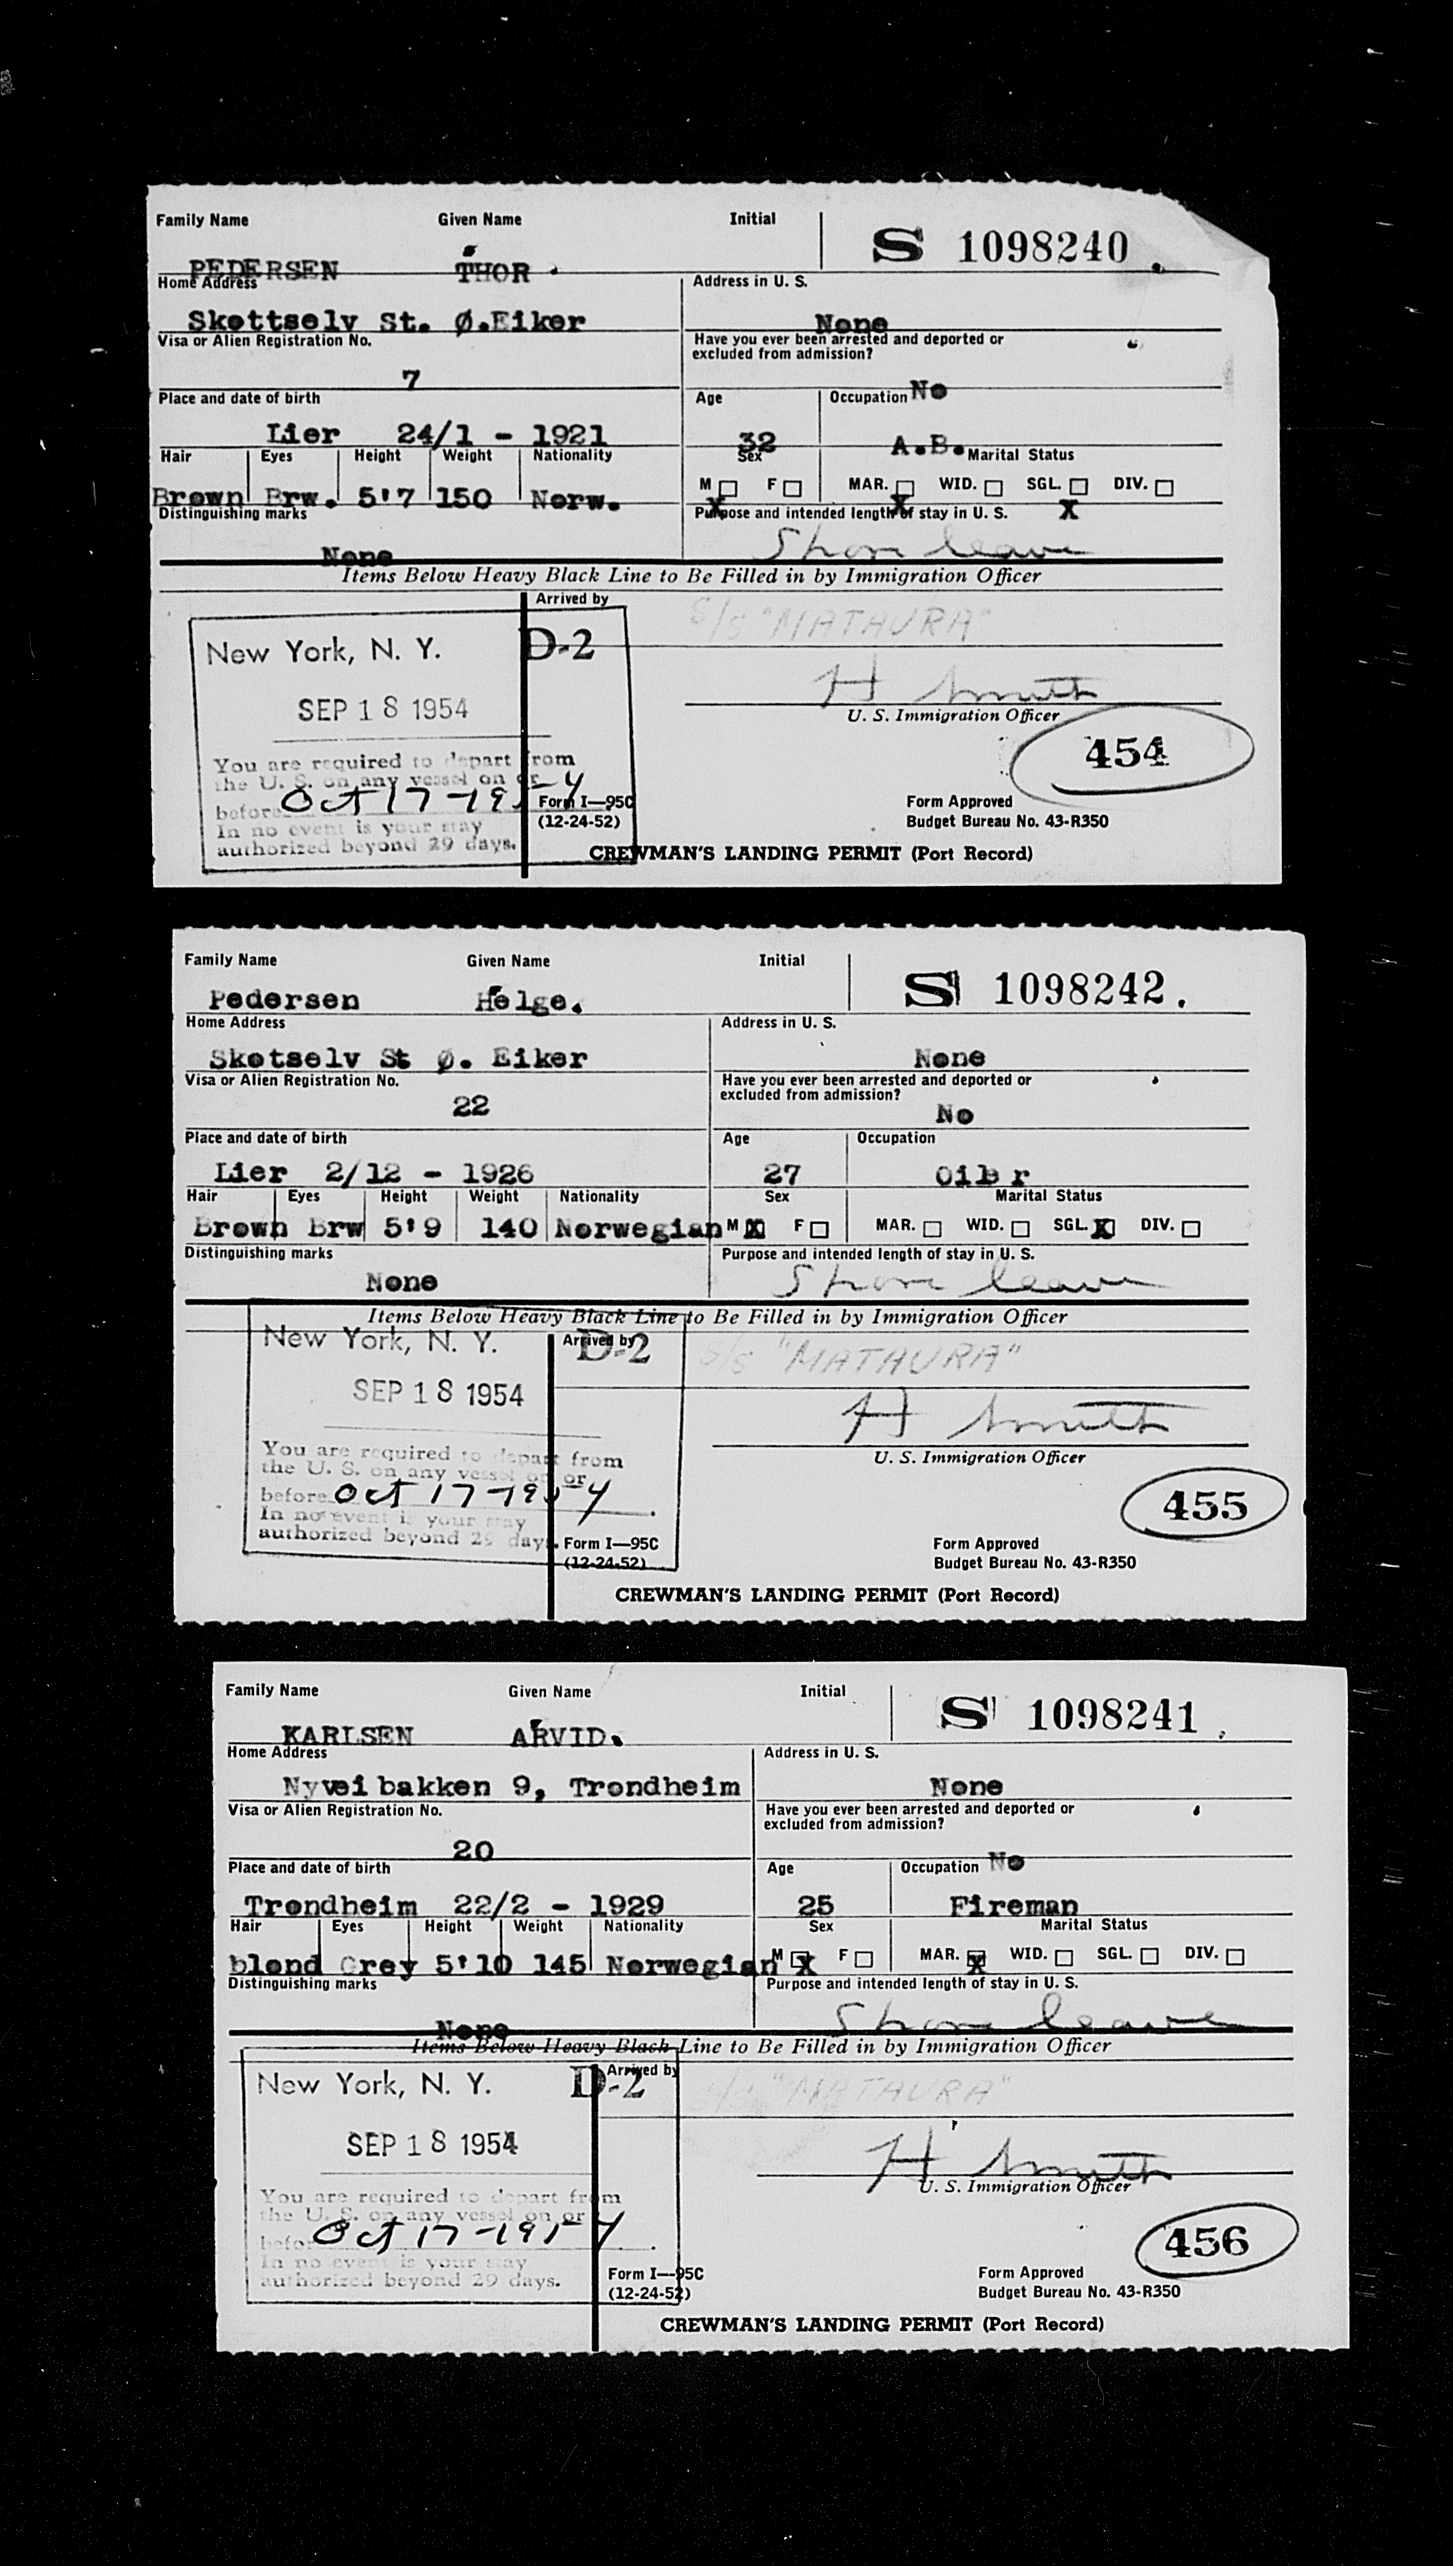 Family Name Given Name Initial
S 1098240
PEDERSEN THOR
Home Address Address in U. S.
Skottselv St. Ø.Eiker None
Visa or Alien Registration No. Have you ever been arrested and deported or
excluded from admission?
7 No
Place and date of birth Age Occupation
Lier 24/1 - 1921 32 A.B.
Hair Eyes Height Weight Nationality Sex Marital Status
M F MAR. WID. SGL. DIV.
Brown Brw. 5'7 150 Norw. X X X
Distinguishing marks Purpose and intended length of stay in U. S.
None Shore leave
Items Below Heavy Black Line to Be Filled in by Immigration Officer
Arrived by
S/S "MATAURA"
New York, N. Y. D-2
H Smith
SEP 18 1954
U. S. Immigration Officer
454
You are required to depart from
the U. S. on any vessel on or
before Oct 17-1954
In no event is your stay
authorized beyond 29 days.
Form I—95C
(12-24-52)
Form Approved
Budget Bureau No. 43-R350
CREWMAN'S LANDING PERMIT (Port Record)
Family Name Given Name Initial
S 1098242.
Pedersen Helge.
Home Address Address in U. S.
Skotselv St Ø. Eiker None
Visa or Alien Registration No. Have you ever been arrested and deported or
excluded from admission?
22 No
Place and date of birth Age Occupation
Lier 2/12 - 1926 27 Oiler
Hair Eyes Height Weight Nationality Sex Marital Status
Brown Brw 5'9 140 Norwegian M X F MAR. WID. SGL. X DIV.
Distinguishing marks Purpose and intended length of stay in U. S.
None Shore leave
Items Below Heavy Black Line to Be Filled in by Immigration Officer
New York, N. Y. Arrived by D-2
S/S "MATAURA"
SEP 18 1954
H Smith
U. S. Immigration Officer
You are required to depart from
the U. S. on any vessel on or
before Oct 17-1954
In no event is your stay
authorized beyond 29 days.
455
Form I—95C
(12-24-52)
Form Approved
Budget Bureau No. 43-R350
CREWMAN'S LANDING PERMIT (Port Record)
Family Name Given Name Initial
S 1098241
KARLSEN ARVID.
Home Address Address in U. S.
Nyveibakken 9, Trondheim None
Visa or Alien Registration No. Have you ever been arrested and deported or
excluded from admission?
20 No
Place and date of birth Age Occupation
Trondheim 22/2 - 1929 25 Fireman
Hair Eyes Height Weight Nationality Sex Marital Status
blond Grey 5'10 145 Norwegian M X F MAR. X WID. SGL. DIV.
Distinguishing marks Purpose and intended length of stay in U. S.
None Shore leave
Items Below Heavy Black Line to Be Filled in by Immigration Officer
New York, N. Y. D-2 Arrived by
S/S "MATAURA"
SEP 18 1954
H Smith
U. S. Immigration Officer
You are required to depart from
the U. S. on any vessel on or
before Oct 17-1954
In no event is your stay
authorized beyond 29 days.
456
Form I—95C
(12-24-52)
Form Approved
Budget Bureau No. 43-R350
CREWMAN'S LANDING PERMIT (Port Record)